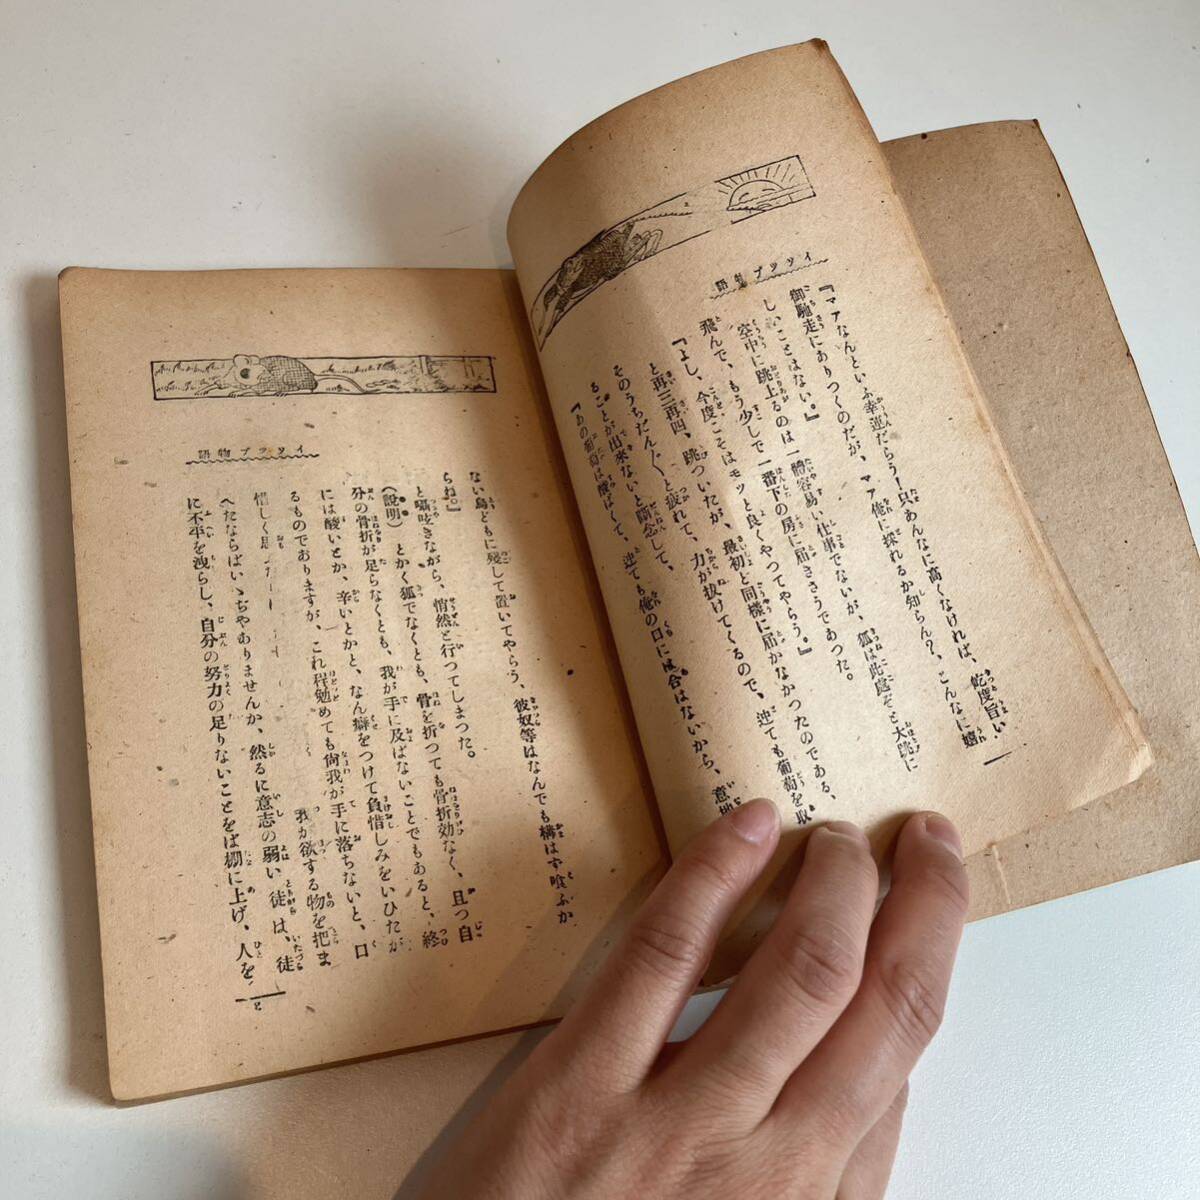 イソップ物語
『マアなんといふ幸運だらう！只あんなに高くなければ、屹度旨い
御馳走にありつくのだが、マア俺に採れるか知らん？、こんなに嬉
しいことはない。』
空中に跳上るのは一體容易い仕事でないが、狐は此處ぞと大跳に
飛んで、もう少しで一番下の房に届きさうであつた。
『よし、今度こそはモッと良くやつてやらう。』
と再三再四、跳ついたが、最初と同様に届かなかつたのである、
そのうちだん〴〵と疲れて、力が抜けてくるので、迚ても葡萄を取
ることが出来ないと斷念して、
『あの葡萄は酸ぱくて、迚ても俺の口には合はないから、意地
一
イソップ物語
ない鳥どもに殘して置いてやらう、彼奴等はなんでも構はず喰ふか
らね。』
と囁呟きながら、悄然と行つてしまつた。
（說明）とかく狐でなくとも、骨を折つても骨折効なく、且つ自
分の骨折が足らなくとも、我が手に及ばないことでもあると、終
には酸いとか、辛いとかと、なん癖をつけて負惜しみをいひたが
るものでありますが、これ程勉めても尙我が手に落ちないと、口
惜しく思 我が欲する物を把ま
へたならばいゝぢやありませんか、然るに意志の弱い徒は、徒
に不平を洩らし、自分の努力の足りないことをば棚に上げ、人を
二